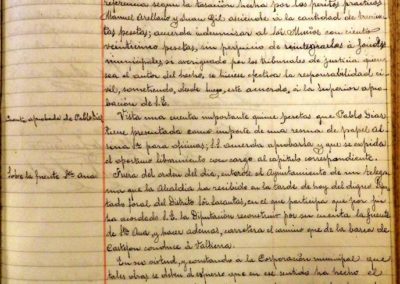 referencia según la tasación hecha por los peritos practicos
Manuel Arellano y Juan Gil asciende á la cantidad de treinta
pesetas; acuerda indemnizar al Sr. Muñoz con ciento
veintiuna pesetas, sin perjuicio de reintegrarlas á fondos
municipales si averiguado por los tribunales de Justicia quien
sea el autor del hecho, se hiciese efectiva la responsabilidad ci-
vil, sometiendo, desde luego, este acuerdo, á la Superior apro-
bación de S.E.
Cuenta aprobada de Pablo Diaz
Vista una cuenta importante quince pesetas que Pablo Diaz
tiene presentada como importe de una resma de papel
para oficinas; S.S. acuerda aprobarla y que se expida
el oportuno libramiento con cargo al capítulo correspondiente.
Sobre la fuente Sta Ana
Fuera del orden del dia, enterose el Ayuntamiento de un telegra-
ma que la Alcaldia ha recibido en la tarde de hoy del digno Dipu-
tado foral del Distrito Sr. en el que participa que por fin
ha acordado S.E. la Diputación reconstruir por su cuenta la fuente
de Sta Ana y hacer ademas, carretera el camino que de la barca de
Castejon conduce á
En su virtud, y constando á la Corporación municipal que
tales obras se deben al esfuerzo que en ese sentido ha hecho el